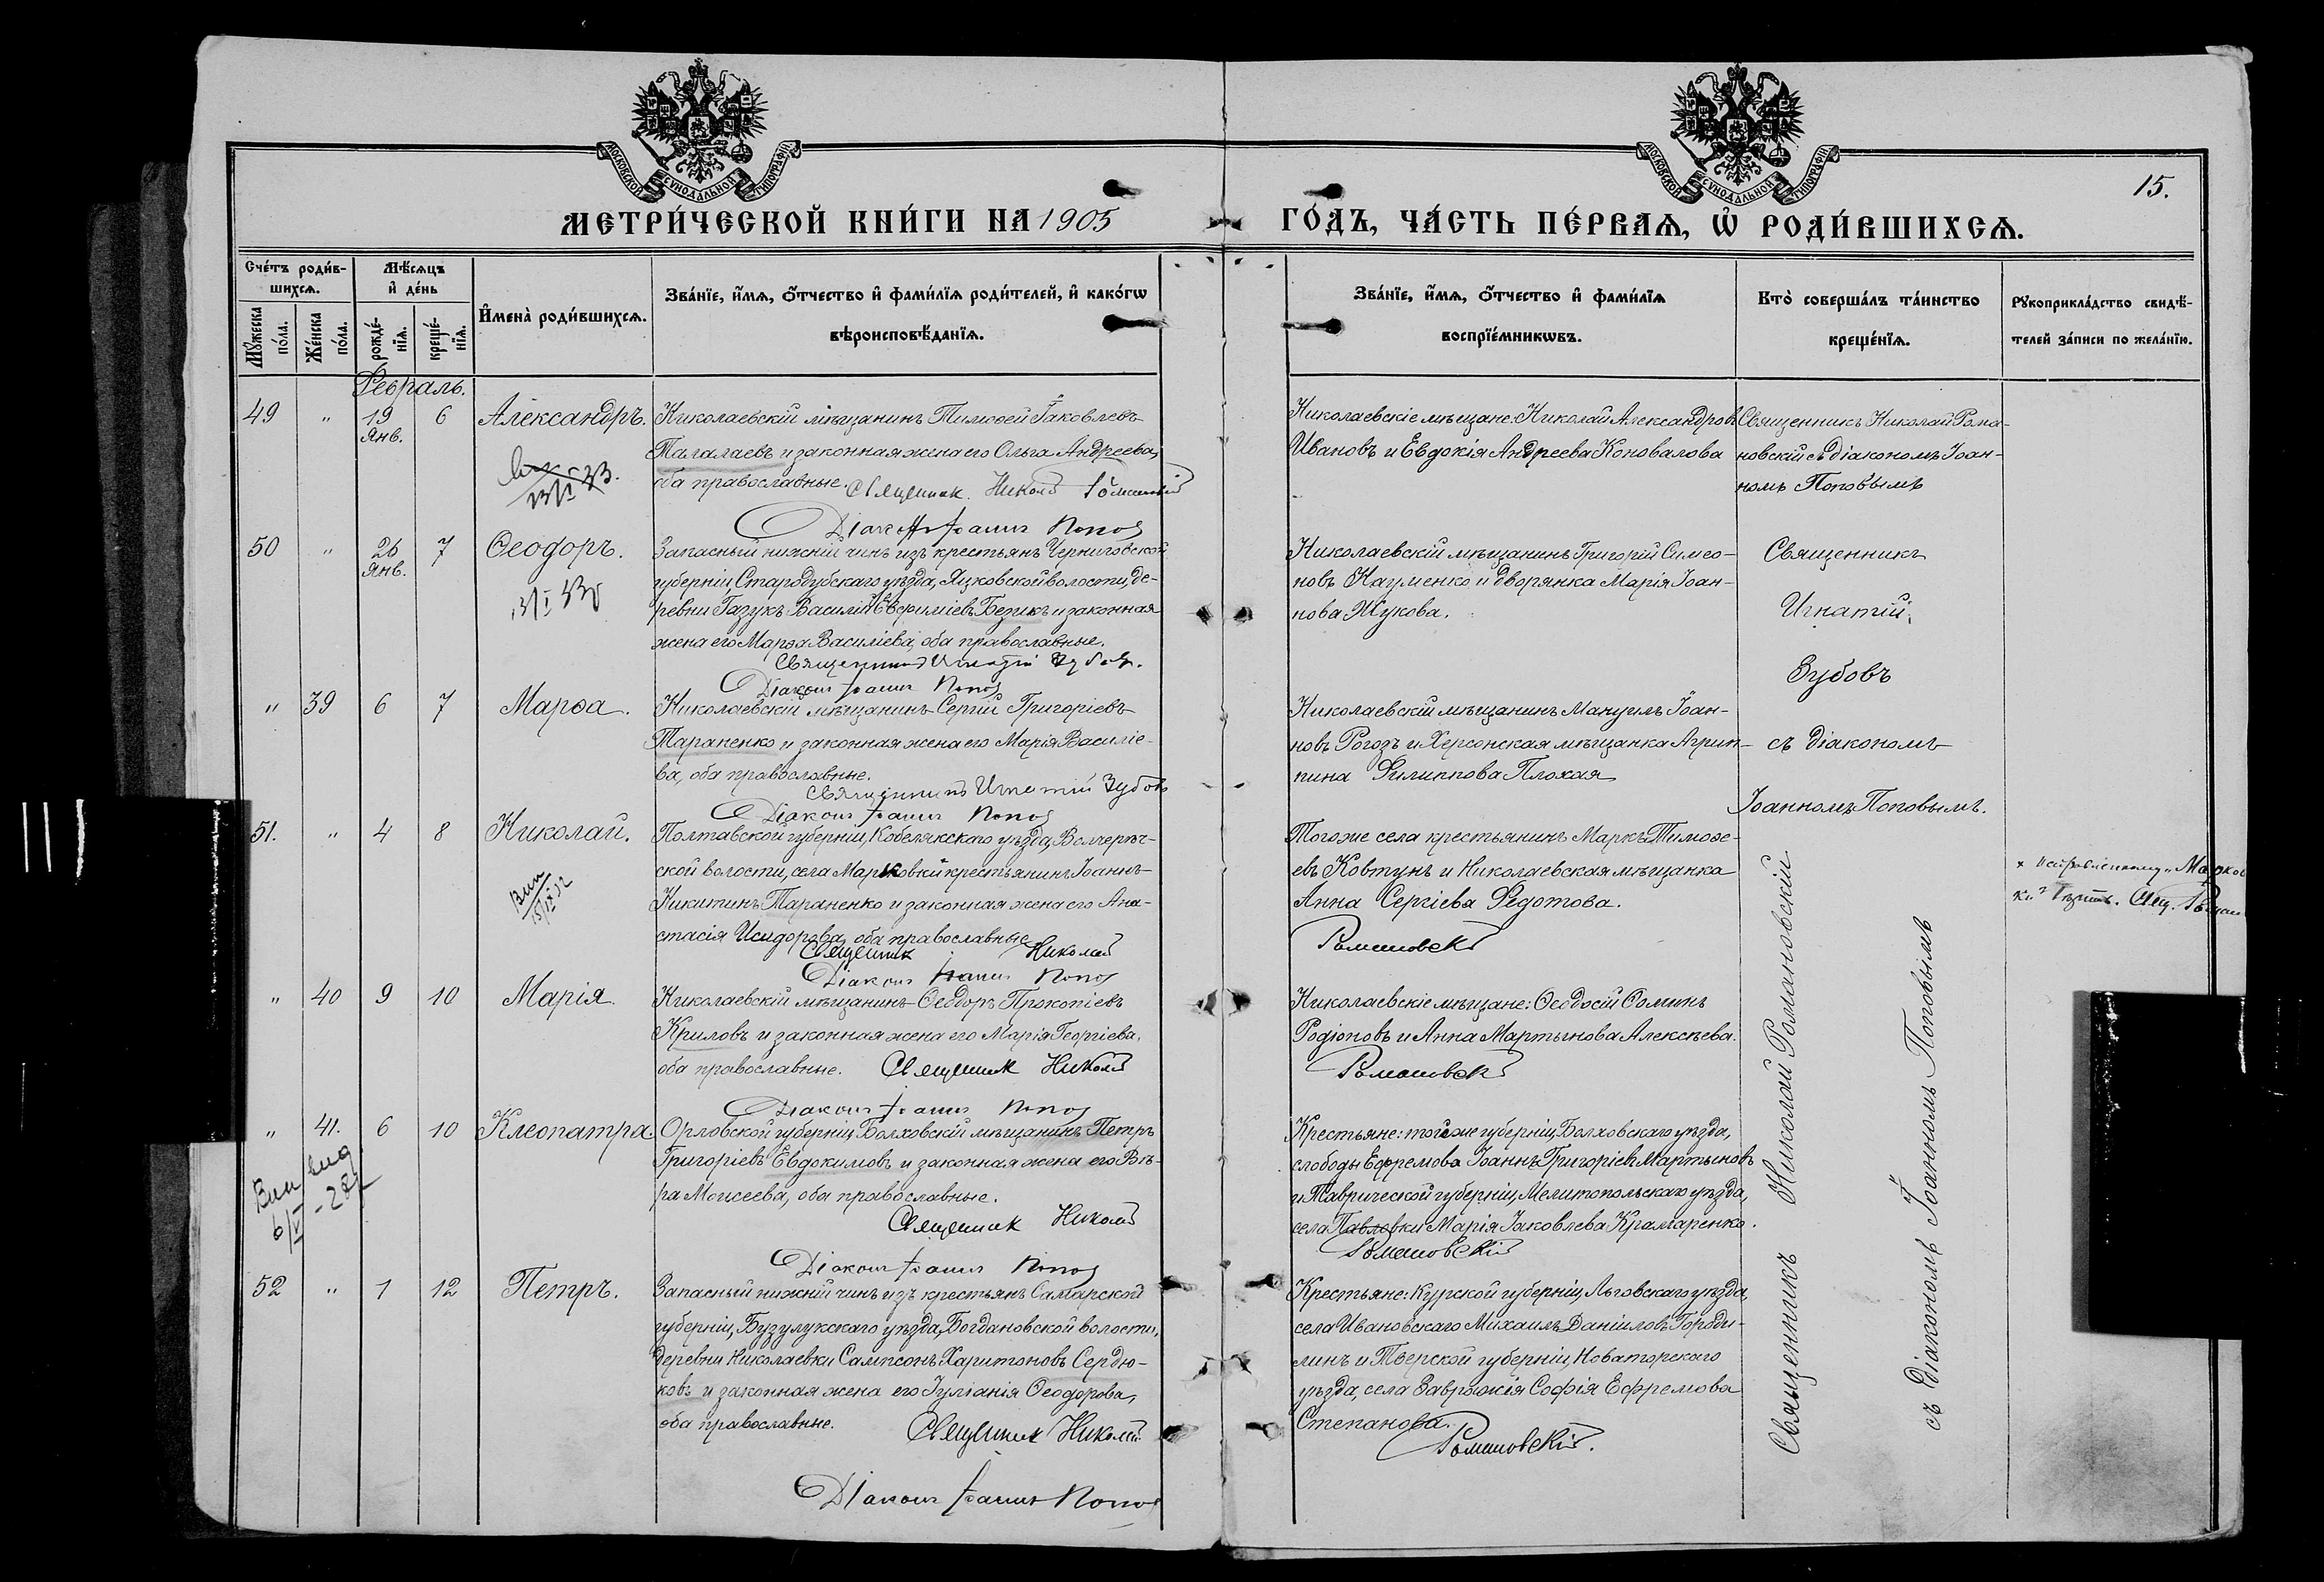 МОСКОВСКОЙ СѴНОДАЛЬНОЙ ТИПОГРАФІИ
МОСКОВСКОЙ СѴНОДАЛЬНОЙ ТИПОГРАФІИ
15.
МЕТРИ́ЧЕСКОЙ КНИ́ГИ НА 1905 ГО́ДЪ, ЧА́СТЬ ПЕ́РВАѦ, Ѡ҆ РОДИ́ВШИХСѦ.
Сче́тъ роди́в-
шихсѧ.
Мꙋ́жеска по́ла.
Же́нска по́ла.
Мѣ́сѧцъ
и҆ де́нь
рожде́-нїѧ.
креще́-нїѧ.
И҆мена̀ роди́вшихсѧ.
Зва́нїе, и҆́мѧ, ѻ҆́тчество и҆ фами́лїѧ роди́телей, и҆ како́гѡ
вѣроисповѣ́данїѧ.
Зва́нїе, и҆́мѧ, ѻ҆́тчество и҆ фами́лїѧ
воспрїе́мникѡвъ.
Кто̀ соверша́лъ та́инство
креще́нїѧ.
Рꙋкоприкла́дство свидѣ́-
телей за́писи по жела́нїю.
Февраль.
49 " 19 Янв. 6 Александръ.
Николаевскій мѣщанинъ Тимоѳей Іаковлевъ
Талалаевъ и законная жена его Ольга Андреева,
оба православные. Священникъ Николай Романовскій
Діаконъ Іоаннъ Поповъ
Николаевскіе мѣщане: Николай Александровъ
Ивановъ и Евдокія Андреева Коновалова
Священникъ Николай Рома-
новскій съ діакономъ Іоан-
номъ Поповымъ
50 " 26 Янв. 7 Ѳеодоръ.
Запасный нижній чинъ изъ крестьянъ Черниговской
губерніи, Стародубскаго уѣзда, Яцковской волости, де-
ревни Газукъ Василій Евфиміевъ Безикъ и законная
жена его Марѳа Василіева, оба православные.
Священникъ Игнатій Зубовъ.
Діаконъ Іоаннъ Поповъ
Николаевскій мѣщанинъ Григорій Симео-
новъ Науменко и дворянка Марія Іоан-
нова Жукова.
Священникъ
Игнатій
Зубовъ
съ діакономъ
Іоанномъ Поповымъ.
" 39 6 7 Марѳа.
Николаевскій мѣщанинъ Сергій Григоріевъ
Тараненко и законная жена его Марія Василіе-
ва, оба православные.
Священникъ Игнатій Зубовъ
Діаконъ Іоаннъ Поповъ
Николаевскій мѣщанинъ Мануилъ Іоан-
новъ Рогозъ и Херсонская мѣщанка Агрип-
пина Филиппова Плохая
51. " 4 8 Николай.
Полтавской губерніи, Кобелякскаго уѣзда, Волчерѣч-
ской волости, села Марковки крестьянинъ Іоаннъ
Никитинъ Тараненко и законная жена его Ана-
стасія Исидорова, оба православные
Священникъ Николай
Діаконъ Іоаннъ Поповъ
Тогоже села крестьянинъ Маркъ Тимоѳе-
евъ Ковтунъ и Николаевская мѣщанка
Анна Сергіева Федотова.
Романовскій
Священникъ Николай Романовскій
съ діакономъ Іоанномъ Поповымъ
" 40 9 10 Марія.
Николаевскій мѣщанинъ Ѳеодоръ Прокопіевъ
Криловъ и законная жена его Марія Георгіева,
оба православные. Священникъ Николай
Діаконъ Іоаннъ Поповъ
Николаевскіе мѣщане: Ѳеодосій Ѳоминъ
Родіоновъ и Анна Мартынова Алексѣева.
Романовскій
" 41. 6 10 Клеопатра
Орловской губерніи, Болховскій мѣщанинъ Петръ
Григоріевъ Евдокимовъ и законная жена его Вѣ-
ра Моисеева, оба православные.
Священникъ Николай
Діаконъ Іоаннъ Поповъ
Крестьяне: тойже губерніи, Болховскаго уѣзда,
слободы Ефремова Іоаннъ Григоріевъ Мартыновъ
и Таврической губерніи, Мелитопольскаго уѣзда,
села Павловки Марія Іаковлева Крамаренко.
Романовскій
52 " 1 12 Петръ.
Запасный нижній чинъ изъ крестьянъ Самарской
губерніи, Бузулукскаго уѣзда, Богдановской волости,
деревни Николаевки Сампсонъ Харитоновъ Сердю-
ковъ и законная жена его Іуліанія Ѳеодорова,
оба православные. Священникъ Николай
Діаконъ Іоаннъ Поповъ
Крестьяне: Курской губерніи, Льговскаго уѣзда,
села Ивановскаго Михаилъ Даніиловъ Городи-
линъ и Тверской губерніи, Новоторскаго
уѣзда, села Завражія Софія Ефремова
Степанова.
Романовскій.